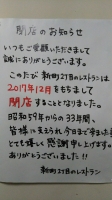 閉店のお知らせ
いつもご愛顧いただきまして
誠にありがとうございます。
このたび新町27のレストランは
2017年12月をもちまして
閉店することとなりました。
昭和59年からの33年間、
皆様に支えられ今日まで来れた事
とても嬉しく感謝申し上げます。
ありがとうございました!!
新町27のレストラン